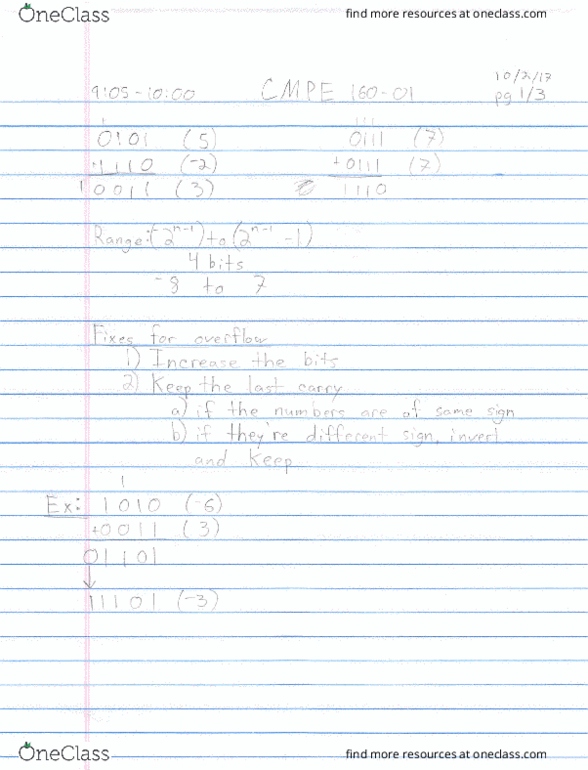 OneClass
find more resources at oneclass.com
10/2/17
9:05-10:00 CMPE 160-01 pg 1/3
1 111
0101 (5) 0111 (7)
+1110 (-2) +0111 (7)
10011 (3) 1110
Range: (-2^n-1) to (2^n-1 - 1)
4 bits
-8 to 7
Fixes for overflow
1) Increase the bits
2) Keep the last carry
a) if the numbers are of same sign
b) if they're different sign, invert
and keep
1
Ex: 1010 (-6)
+0011 (3)
01101
↓
11101 (-3)
OneClass
find more resources at oneclass.com